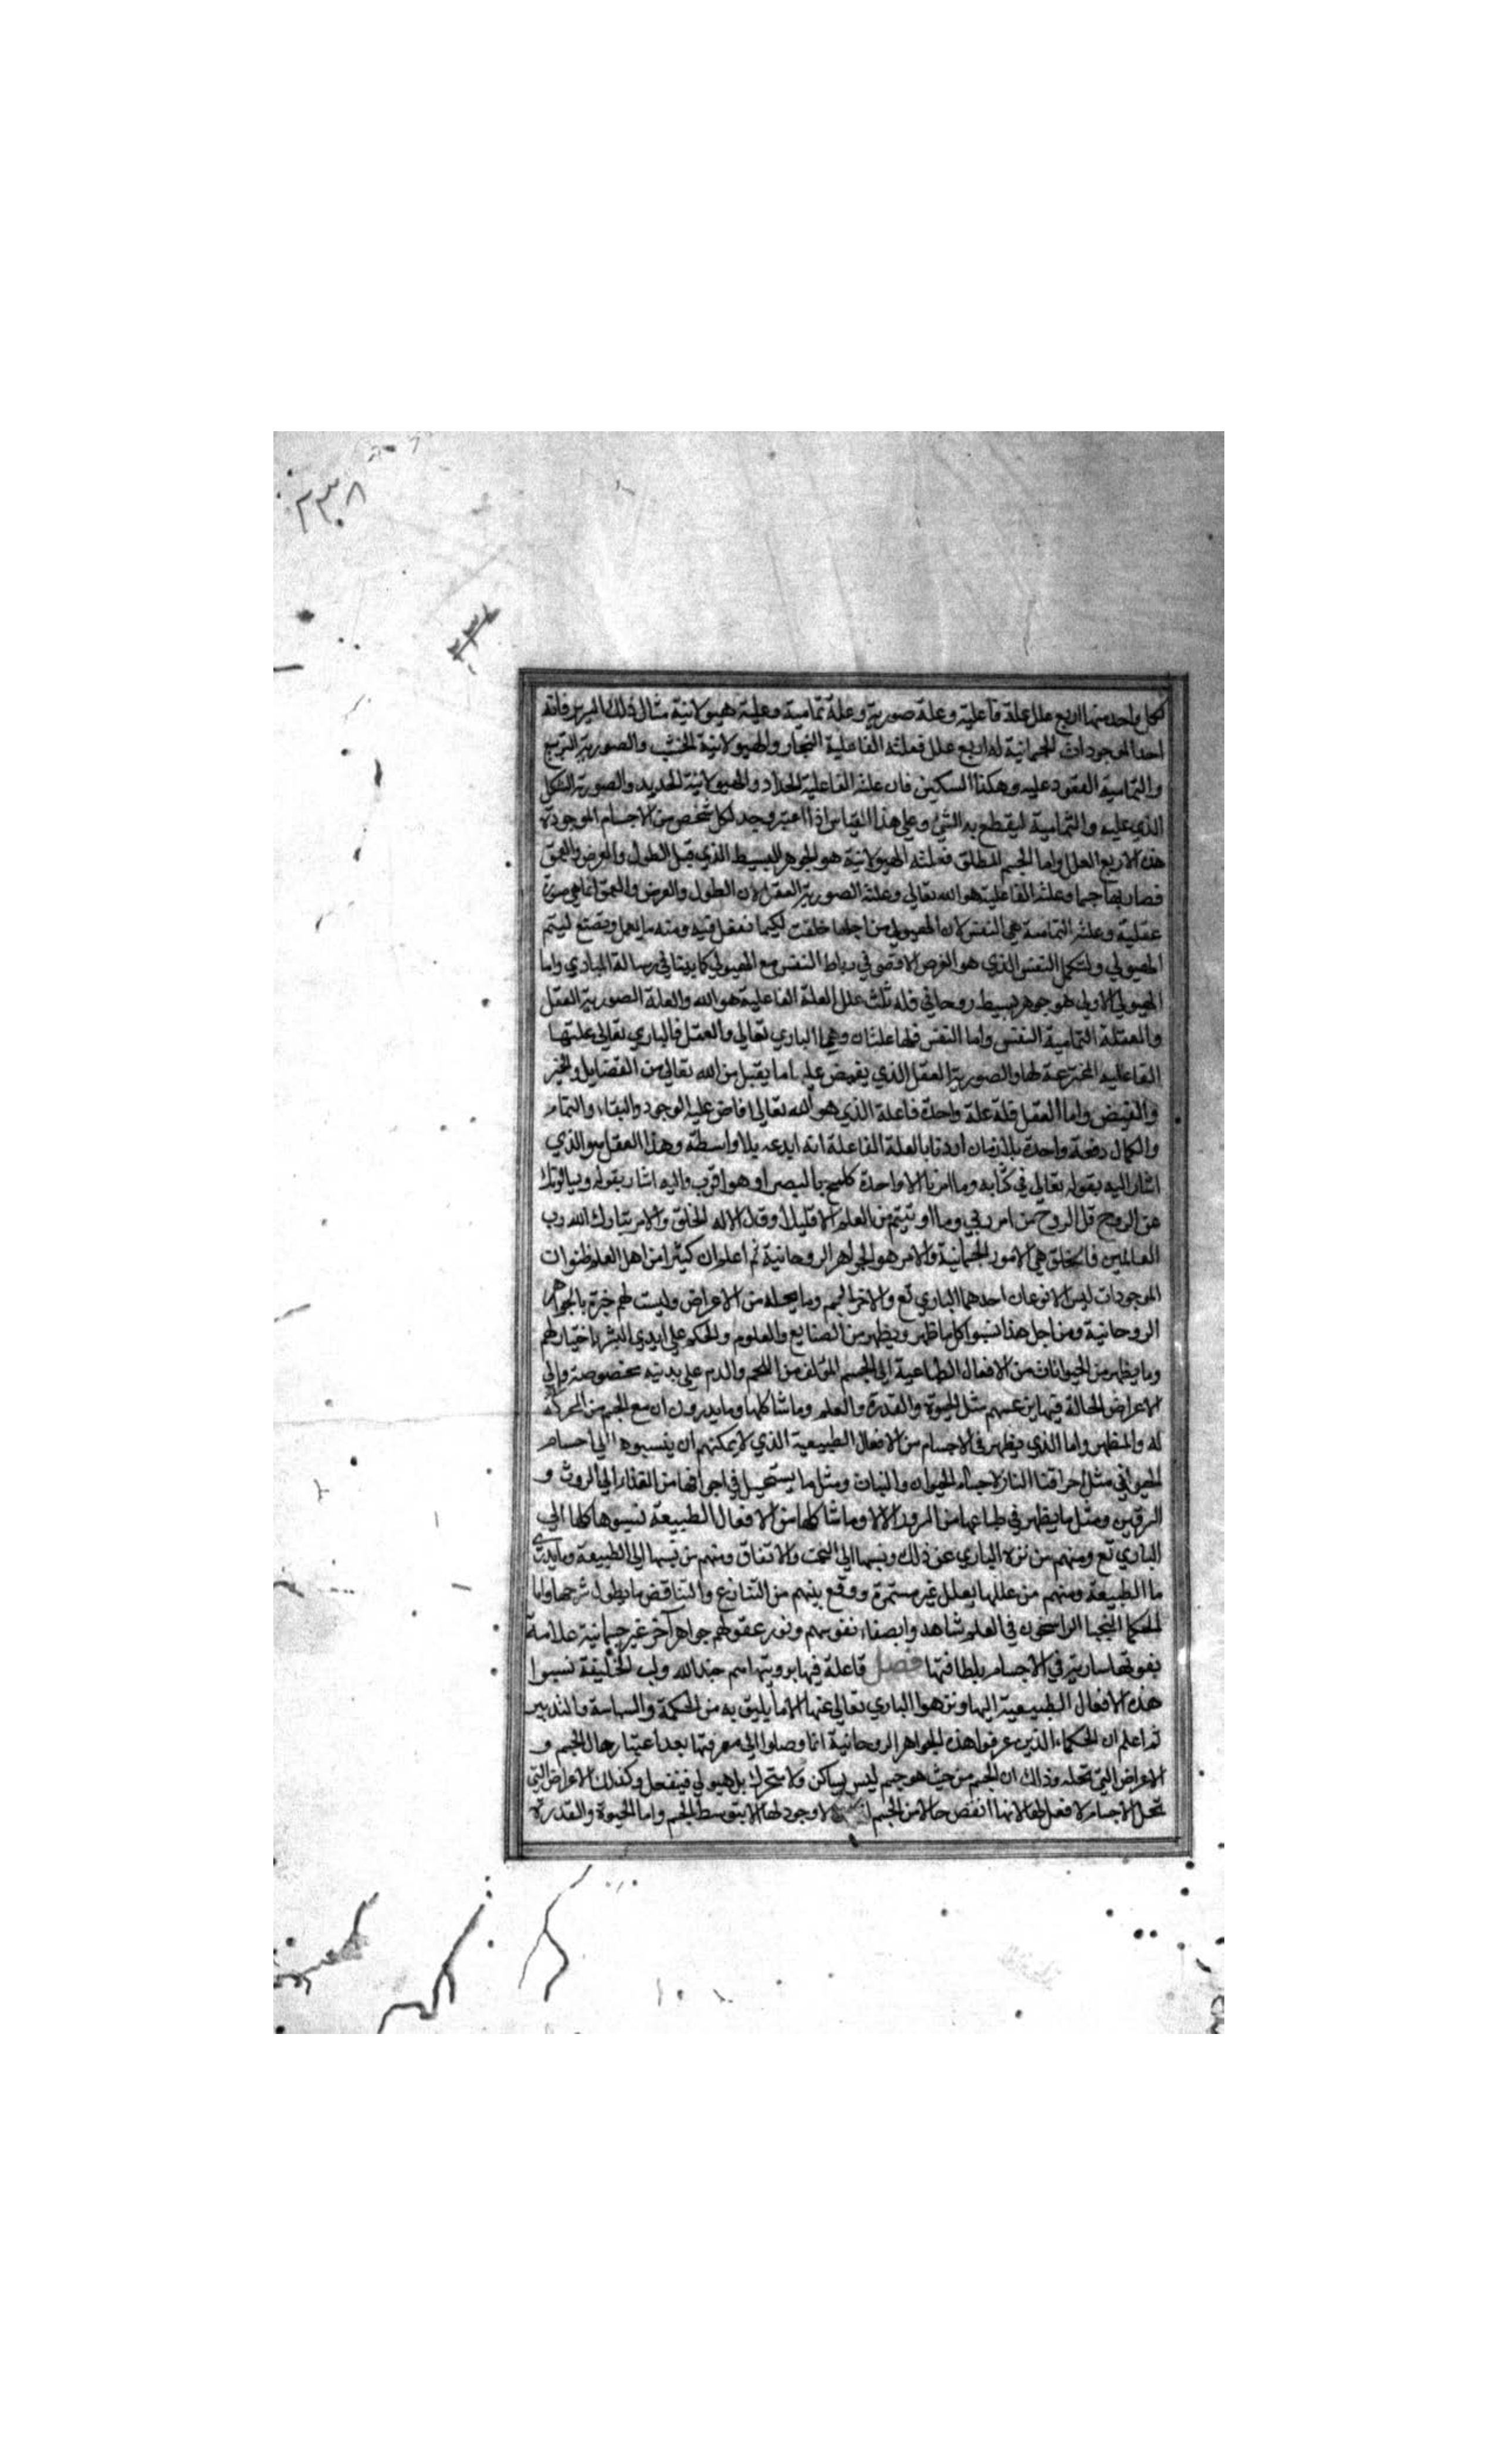 ٢٣٨
٢٣٧
لكل واحد منها اربع علل علة فاعلية وعلة صورية وعلة تمامية وعلة هيولانية مثال ذلك السرير فانه
احد الموجودات الجسمانية له اربع علل فعلته الفاعلية النجار والهيولانية الخشب والصورية التربيع
والتمامية القعود عليه وهكذا السكين فان علته الفاعلية الحداد والهيولانية الحديد والصورية الشكل
الذي عليه والتمامية ليقطع به الشئ وعلى هذا القياس اذا اعتبر وجد لكل شخص من الاجسام الموجودة
هذه الاربع العلل واما الجسم المطلق فعلته الهيولانية هو الجوهر البسيط الذي قبل الطول والعرض والعمق
فصار بها جسما وعلته الفاعلية هو الله تعالى وعلته الصورية العقل لان الطول والعرض والعمق انما هي صورة
عقلية وعلته التمامية هي النفس لان الهيولي من اجلها خلقت لكيما تفعل فيه ومنه ما يعمل ويصنع ليتم
الهيولي ولتكمل النفس الذي هو الغرض الاقصى في رباط النفس مع الهيولي كما بينا في رسالة المبادي واما
الهيولي الاولى هو جوهر بسيط روحاني فله ثلث علل العلة الفاعلية هو الله والعلة الصورية العقل
والعلة التمامية النفس واما النفس فلها علتان وهما الباري تعالى والعقل فالباري تعالى علتها
الفاعلية المخترعة لها والصورية العقل الذي يفيض عليها ما يقبل من الله تعالى من الفضايل والخير
والفيض واما العقل فله علة واحدة فاعلة الذي هو الله تعالى افاض عليه الوجود والبقاء والتمام
والكمال دفعة واحدة بلا زمان اردنا بالعلة الفاعلة انه ابدعه بلا واسطة وهذا العقل هو الذي
اشار اليه بقوله تعالى في كتابه وما امرنا الا واحدة كلمح بالبصر او هو اقرب واليه اشار بقوله ويسالونك
عن الروح قل الروح من امر ربي وما اوتيتم من العلم الا قليلا وقال الا له الخلق والامر تبارك الله رب
العالمين فالخلق هي الامور الجسمانية والامر هو الجواهر الروحانية ثم اعلم ان كثيرا من اهل العلم ظنوا ان
الموجودات ليس الا نوعان احدهما الباري تع والاخر الجسم وما يحله من الاعراض وليست لهم خبرة بالجواهر
الروحانية ومن اجل هذا نسبوا كلما ظهر ويظهر من الصنايع والعلوم والحكم على ايدي البشر باختيارهم
وما يظهر من الحيوانات من الافعال الطباعية الى الجسم المؤلف من اللحم والدم على بنية مخصوصة والى
الاعراض الحالة فيها بزعمهم مثل الحيوة والقدرة والعلم وما شاكلها وما يدرون ان مع الجسم من المحركة
له والمظهر واما الذي يظهر في الاجسام من الافعال الطبيعية الذي لا يمكنهم ان ينسبوه الى اجسام
الحيواني مثل احراقنا النار لاجساد الحيوان والنبات ومثل ما يستحيل في اجوافها من الغذاء الى الروث و
السرقين ومثل ما يظهر في طباعها من المرور الا وما شاكلها من الافعال الطبيعة نسبوها كلها الى
الباري تع ومنهم من نزه الباري عن ذلك ونسبها الى البخت والاتفاق ومنهم من نسبها الى الطبيعة وما يدري
ما الطبيعة ومنهم من عللها بعلل غير مستمرة ووقع بينهم من التنازع والتناقض ما يطول شرحها واما
الحكما النجبا الراسخون في العلم شاهدوا بصفاء نفوسهم ونور عقولهم جواهر آخر غير جسمانية علامة
بقوتها سارية في الاجسام بلطافتها فصل فاعلة فيها برويتها هم جند الله ولب الخليقة نسبوا
هذه الافعال الطبيعية اليها ونزهوا الباري تعالى عنها الا ما يليق به من الحكمة والسياسة والتدبير
ثم اعلم ان الحكماء الذين عرفوا هذه الجواهر الروحانية انما وصلوا الى معرفتها بعد اعتبار حال الجسم و
الاعراض التي تحله وذلك ان الجسم من حيث هو جسم ليس بساكن ولا متحرك بل هيولي فينفعل وكذلك الاعراض التي
تحل الاجسام لا فعل لها لانها انقص حالا من الجسم لا وجود لها الا بتوسط الجسم واما الحيوة والقدرة